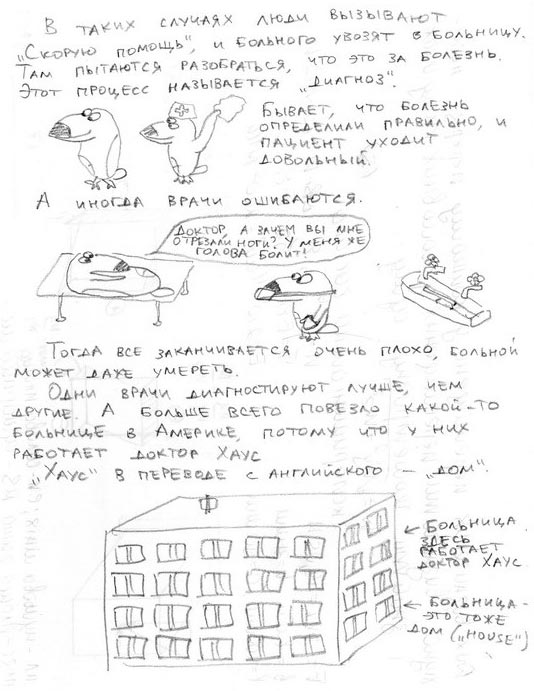 В ТАКИХ СЛУЧАЯХ ЛЮДИ ВЫЗЫВАЮТ
„СКОРУЮ ПОМОЩЬ", И БОЛЬНОГО УВОЗЯТ В БОЛЬНИЦУ.
ТАМ ПЫТАЮТСЯ РАЗОБРАТЬСЯ, ЧТО ЭТО ЗА БОЛЕЗНЬ.
ЭТОТ ПРОЦЕСС НАЗЫВАЕТСЯ „ДИАГНОЗ".
БЫВАЕТ, ЧТО БОЛЕЗНЬ
ОПРЕДЕЛИЛИ ПРАВИЛЬНО, И
ПАЦИЕНТ УХОДИТ
ДОВОЛЬНЫЙ.
А ИНОГДА ВРАЧИ ОШИБАЮТСЯ.
ДОКТОР, А ЗАЧЕМ ВЫ МНЕ
ОТРЕЗАЛИ НОГИ? У МЕНЯ ЖЕ
ГОЛОВА БОЛИТ!
ТОГДА ВСЕ ЗАКАНЧИВАЕТСЯ ОЧЕНЬ ПЛОХО, БОЛЬНОЙ
МОЖЕТ ДАЖЕ УМЕРЕТЬ.
ОДНИ ВРАЧИ ДИАГНОСТИРУЮТ ЛУЧШЕ, ЧЕМ
ДРУГИЕ. А БОЛЬШЕ ВСЕГО ПОВЕЗЛО КАКОЙ-ТО
БОЛЬНИЦЕ В АМЕРИКЕ, ПОТОМУ ЧТО У НИХ
РАБОТАЕТ ДОКТОР ХАУС
„ХАУС" В ПЕРЕВОДЕ С АНГЛИЙСКОГО – „ДОМ".
БОЛЬНИЦА.
ЗДЕСЬ
РАБОТАЕТ
ДОКТОР ХАУС
БОЛЬНИЦА -
ЭТО ТОЖЕ
ДОМ („HOUSE")